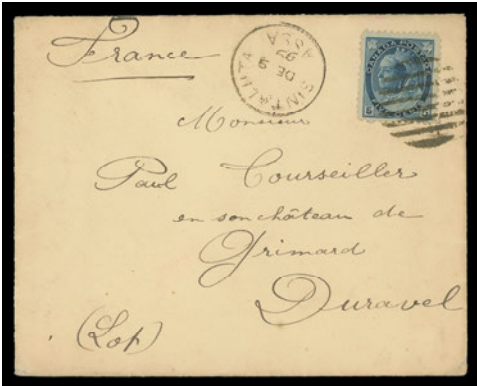 France
SINTALUTA
ASSA
DE 9
97
CANADA POSTAGE
5 5
Monsieur
Paul Courseiller
en son château de
Grimard
Duravel
(Lot)